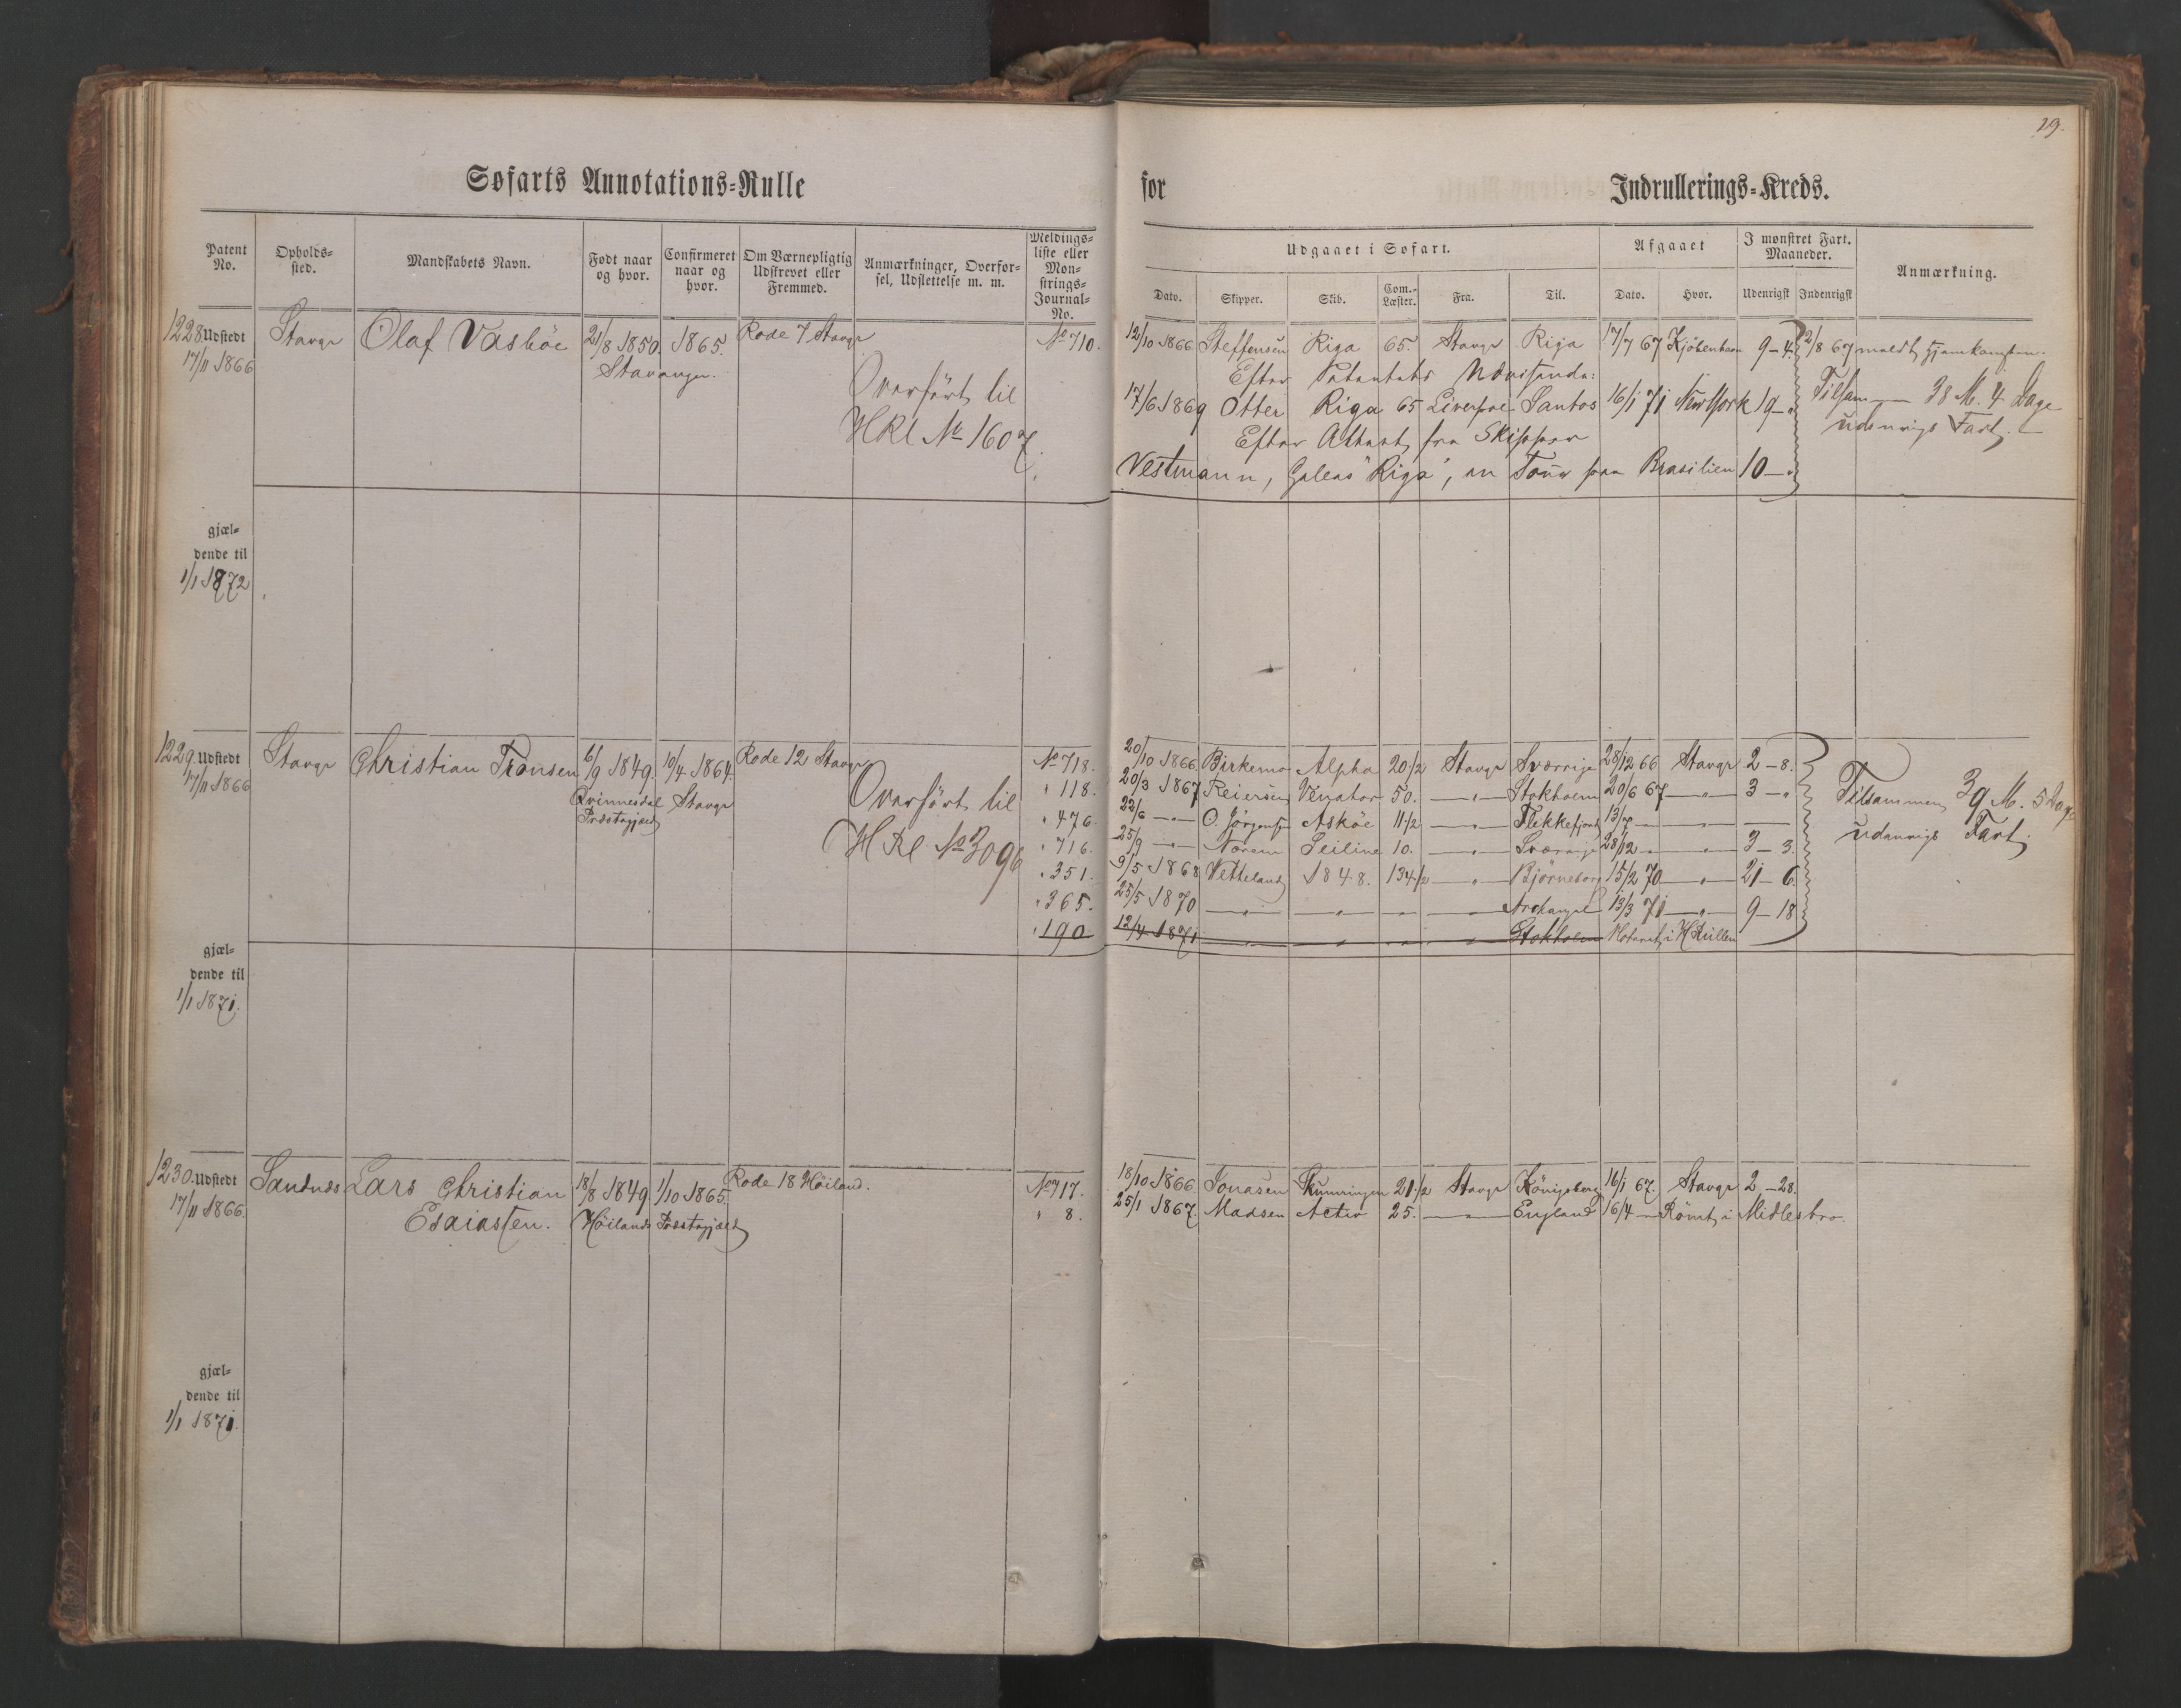 29.
Søfarts Annotations-Rulle for Indrullerings-Kreds.
Patent No. Opholds-sted. Mandskabets Navn. Født naar og hvor. Confirmeret naar og hvor. Om Værnepligtig Udskrevet eller Fremmed. Anmærkninger, Overførsel, Udslettelse m. m. Meldings-liste eller Mønstrings-Journal-No.
Udgaaet i Søfart. Afgaaet I mønstret Fart. Maaneder. Anmærkning.
Dato. Skipper. Skib. Com.-Læster. Fra. Til. Dato. Hvor. Udenrigst Indenrigst
1228 Udstedt Stavgr Olaf Vasböe 21/8 1850. 1865. Rode 7 Stavgr No 710. 12/10 1866 Steffensen Riga 65. Stavgr Riga 17/7 67 Kjöbenhavn 9-4. 2/8 67 meldt Hjemkomsten.
17/11 1866 Stavanger.
Overført til Efter Patentets Udvisende:
17/6 1869 Otter Riga 65 Liverpol Santos 16/1 71 New York 19-" Tilsammen 38 M. 4 Dage
HRl No 1607. Efter Attest fra Skipper udenrigs Fart.
Vestmann, Galeas "Riga", en Tour paa Brasilien 10-"
gjæl-
dende til
1/1 1872
1229. Udstedt Stavgr Christian Tronsen 6/9 1849. 10/4 1864. Rode 12 Stavgr No 718. 20/10 1866 Birkemo Alpha 20 1/2 Stavgr Sverrige 28/12 66 Stavgr 2-8.
17/11 1866 Qvinnesdal Stavgr Overført til " 118. 20/3 1867 Reiersen Venator 50. —"— Stokholm 20/6 67 —"— 3-" Tilsammen 39 M. 5 Dage
Præstegjæld " 476. 22/6 —"— O. Jörgensen Asköe 11 1/2 —"— Flekkefjord 13/7 — — —
HRl No 3096 " 716. 25/9 —"— Norem Seiline 10. —"— Sverrige 28/12 — " 3-3. udenrigs Fart.
" 351. 9/5 1868 Vetteland 1848. 134 1/2 —"— Björneborg 15/2 70 —"— 21-6.
" 365. 25/5 1870 —"— —"— — — Archangel 13/3 71 —"— 9-18
" 190 12/4 1871 — " " " Stokholm Noteret i HRullen
gjæl-
dende til
1/1 1871.
1230. Udstedt Sandnæs Lars Christian 18/8 1849. 1/10 1865. Rode 18 Höiland. No 717. 18/10 1866 Jonasen 21 1/2 Stavgr Königsberg 16/1 67. Stavgr 2-28.
17/11 1866. Esaiasen. Höilands Præstegjæld " 8. 25/1 1867. Madsen Activ 25. — England 16/4 — Römt i Midlesbro.
gjæl-
dende til
1/1 1871.